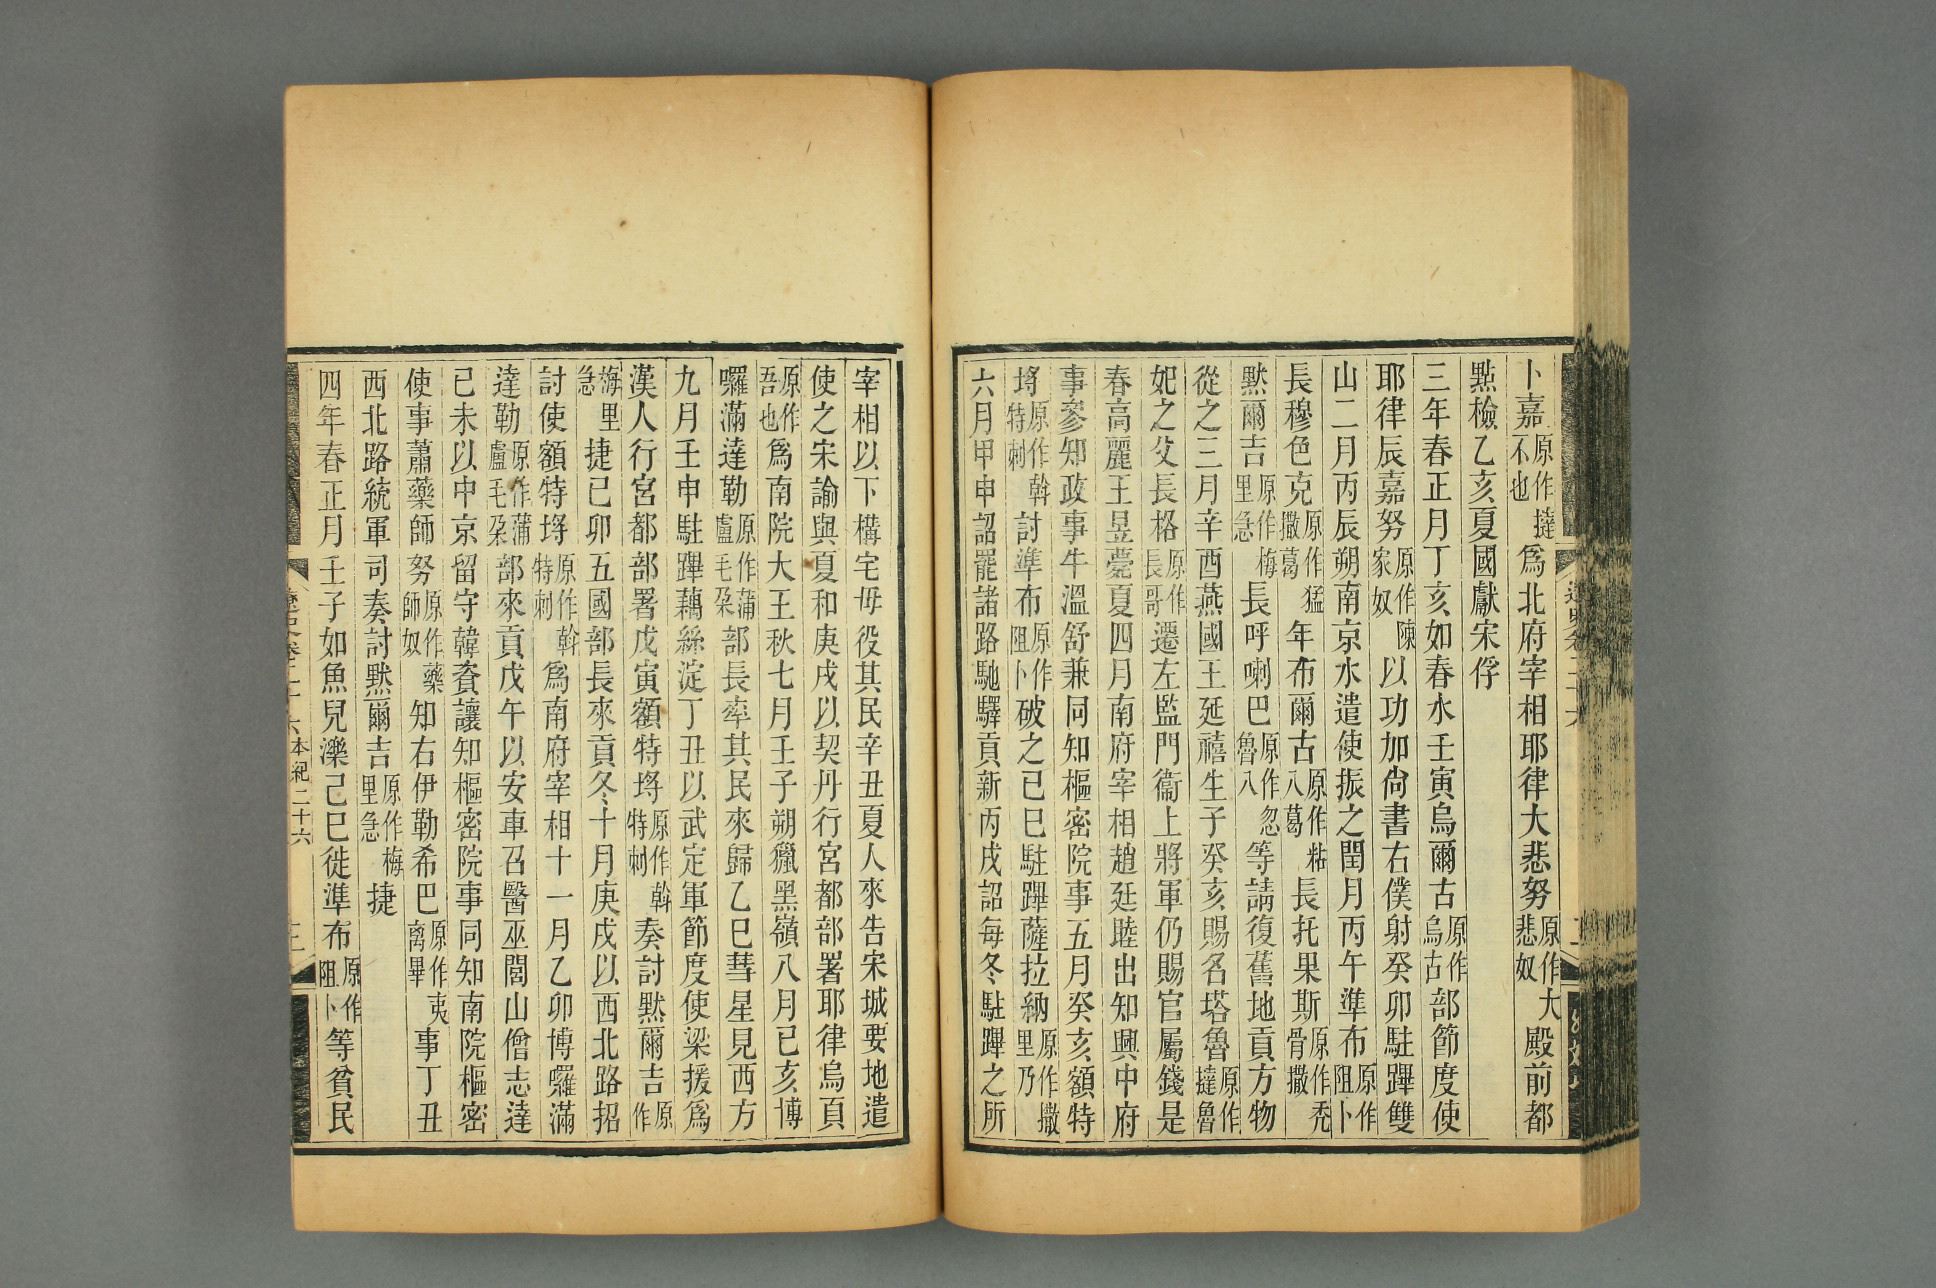 卜嘉原作撻不也為北府宰相耶律大悲努原作大悲奴殿前都
點檢乙亥夏國獻宋俘
三年春正月丁亥如春水壬寅烏爾古原作烏古部節度使
耶律辰嘉努原作陳家奴以功加尙書右僕射癸卯駐蹕雙
山二月丙辰朔南京水遣使振之閏月丙午準布原作阻卜
長穆色克原作猛撒葛年布爾古原作粘八葛長托果斯原作禿骨撒
黙爾吉原作梅里急長呼喇巴原作忽魯八等請復舊地貢方物
從之三月辛酉燕國王延禧生子癸亥賜名塔魯原作撻魯
妃之父長格原作長哥遷左監門衞上將軍仍賜官屬錢是
春高麗王昱薨夏四月南府宰相趙廷睦出知興中府
事參知政事牛溫舒兼同知樞密院事五月癸亥額特
埒原作斡特剌討準布原作阻卜破之己巳駐蹕薩拉納原作撒里乃
六月甲申詔罷諸路馳驛貢新丙戌詔每冬駐蹕之所
宰相以下構宅毋役其民辛丑夏人來告宋城要地遣
使之宋諭與夏和庚戌以契丹行宮都部署耶律烏頁
原作吾也為南院大王秋七月壬子朔獵黑嶺八月己亥博
囉滿達勒原作蒲盧毛朶部長率其民來歸乙巳彗星見西方
九月壬申駐蹕藕絲淀丁丑以武定軍節度使梁援爲
漢人行宮都部署戊寅額特埒原作斡特剌奏討黙爾吉原作
梅里急捷己卯五國部長來貢冬十月庚戌以西北路招
討使額特埒原作斡特剌為南府宰相十一月乙卯博囉滿
達勒原作蒲盧毛朶部來貢戊午以安車召醫巫閭山僧志達
己未以中京留守韓資讓知樞密院事同知南院樞密
使事蕭藥師努原作藥師奴知右伊勒希巴原作夷离畢事丁丑
西北路統軍司奏討黙爾吉原作梅里急捷
四年春正月壬子如魚兒濼己巳徙準布原作阻卜等貧民
遼史卷二十六 本紀二十六